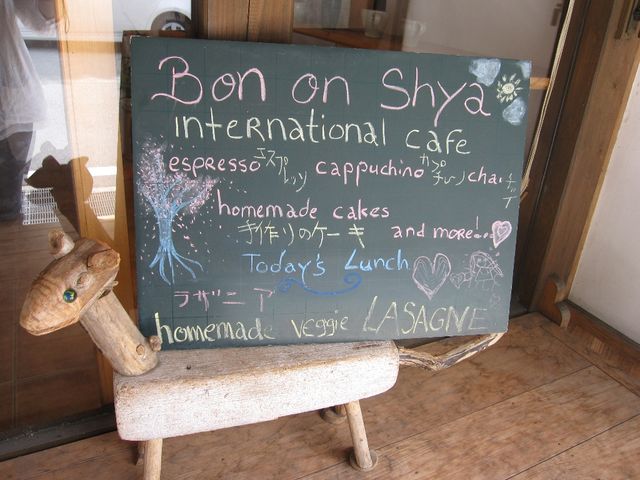 Bon on Shya
international cafe
espresso エスプレッソ cappuchino カプチーノ chai チャイ
homemade cakes
手作りのケーキ and more!..
Today's Lunch
ラザニア
homemade veggie LASAGNE